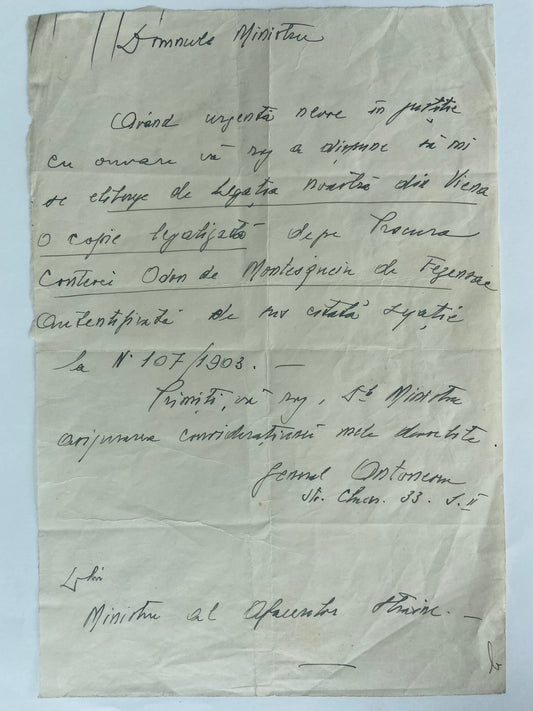 Domnule Ministru
Având urgentă nevoe în justiție
cu onoare vă rog a dispune să mi
se elibereze de Legația noastră din Viena
O copie legalizată depe Procura
Contesei Odon de Montesquiou de Fezensac
Autentificată de sus citată Legație
la Nº 107/1903. —
Primiți, vă rog, Dle Ministru
asigurarea considerațiunei mele deosebite.
General
Str. 33. S. II
Dlui
Ministru al Afacerilor Străine. —